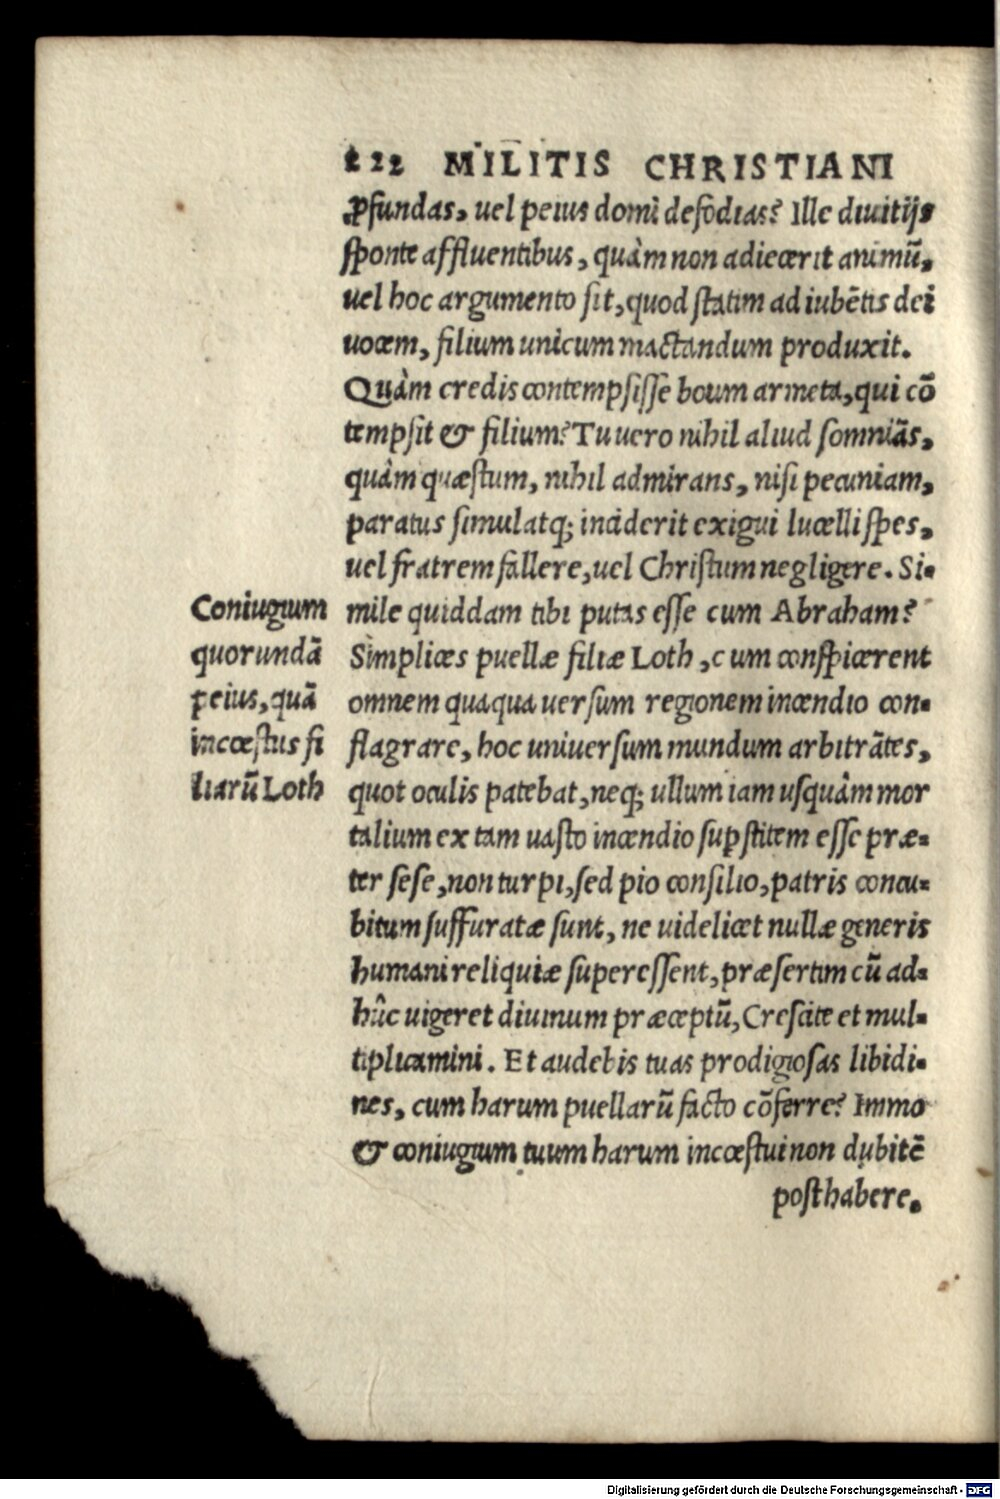 222 MILITIS CHRISTIANI
ꝓfundas, uel peius domi defodias? Ille diuitijs
sponte affluentibus, quàm non adiecerit animū,
uel hoc argumento sit, quod statim ad iubētis dei
uocem, filium unicum mactandum produxit.
Quàm credis contempsisse boum armēta, qui cō
tempsit & filium? Tu uero nihil aliud somniās,
quàm quæstum, nihil admirans, nisi pecuniam,
paratus simulatq; inciderit exigui lucelli spes,
uel fratrem fallere, uel Christum negligere. Si-
mile quiddam tibi putas esse cum Abraham?
Simplices puellæ filiæ Loth, cum conspicerent
omnem quaqua uersum regionem incendio con-
flagrare, hoc uniuersum mundum arbitrātes,
quot oculis patebat, neq; ullum iam usquàm mor
talium ex tam uasto incendio supstitem esse præ-
ter sese, non turpi, sed pio consilio, patris concu-
bitum suffuratæ sunt, ne uidelicet nullæ generis
humani reliquiæ superessent, præsertim cū ad-
hûc uigeret diuinum præceptū, Crescite et mul-
tiplicamini. Et audebis tuas prodigiosas libidi-
nes, cum harum puellarū facto cōferre? Immo
& coniugium tuum harum incœstui non dubitē
posthabere.
Coniugium
quorundā
peius, quā
incœstus fi
liarū Loth
Digitalisierung gefördert durch die Deutsche Forschungsgemeinschaft - DFG